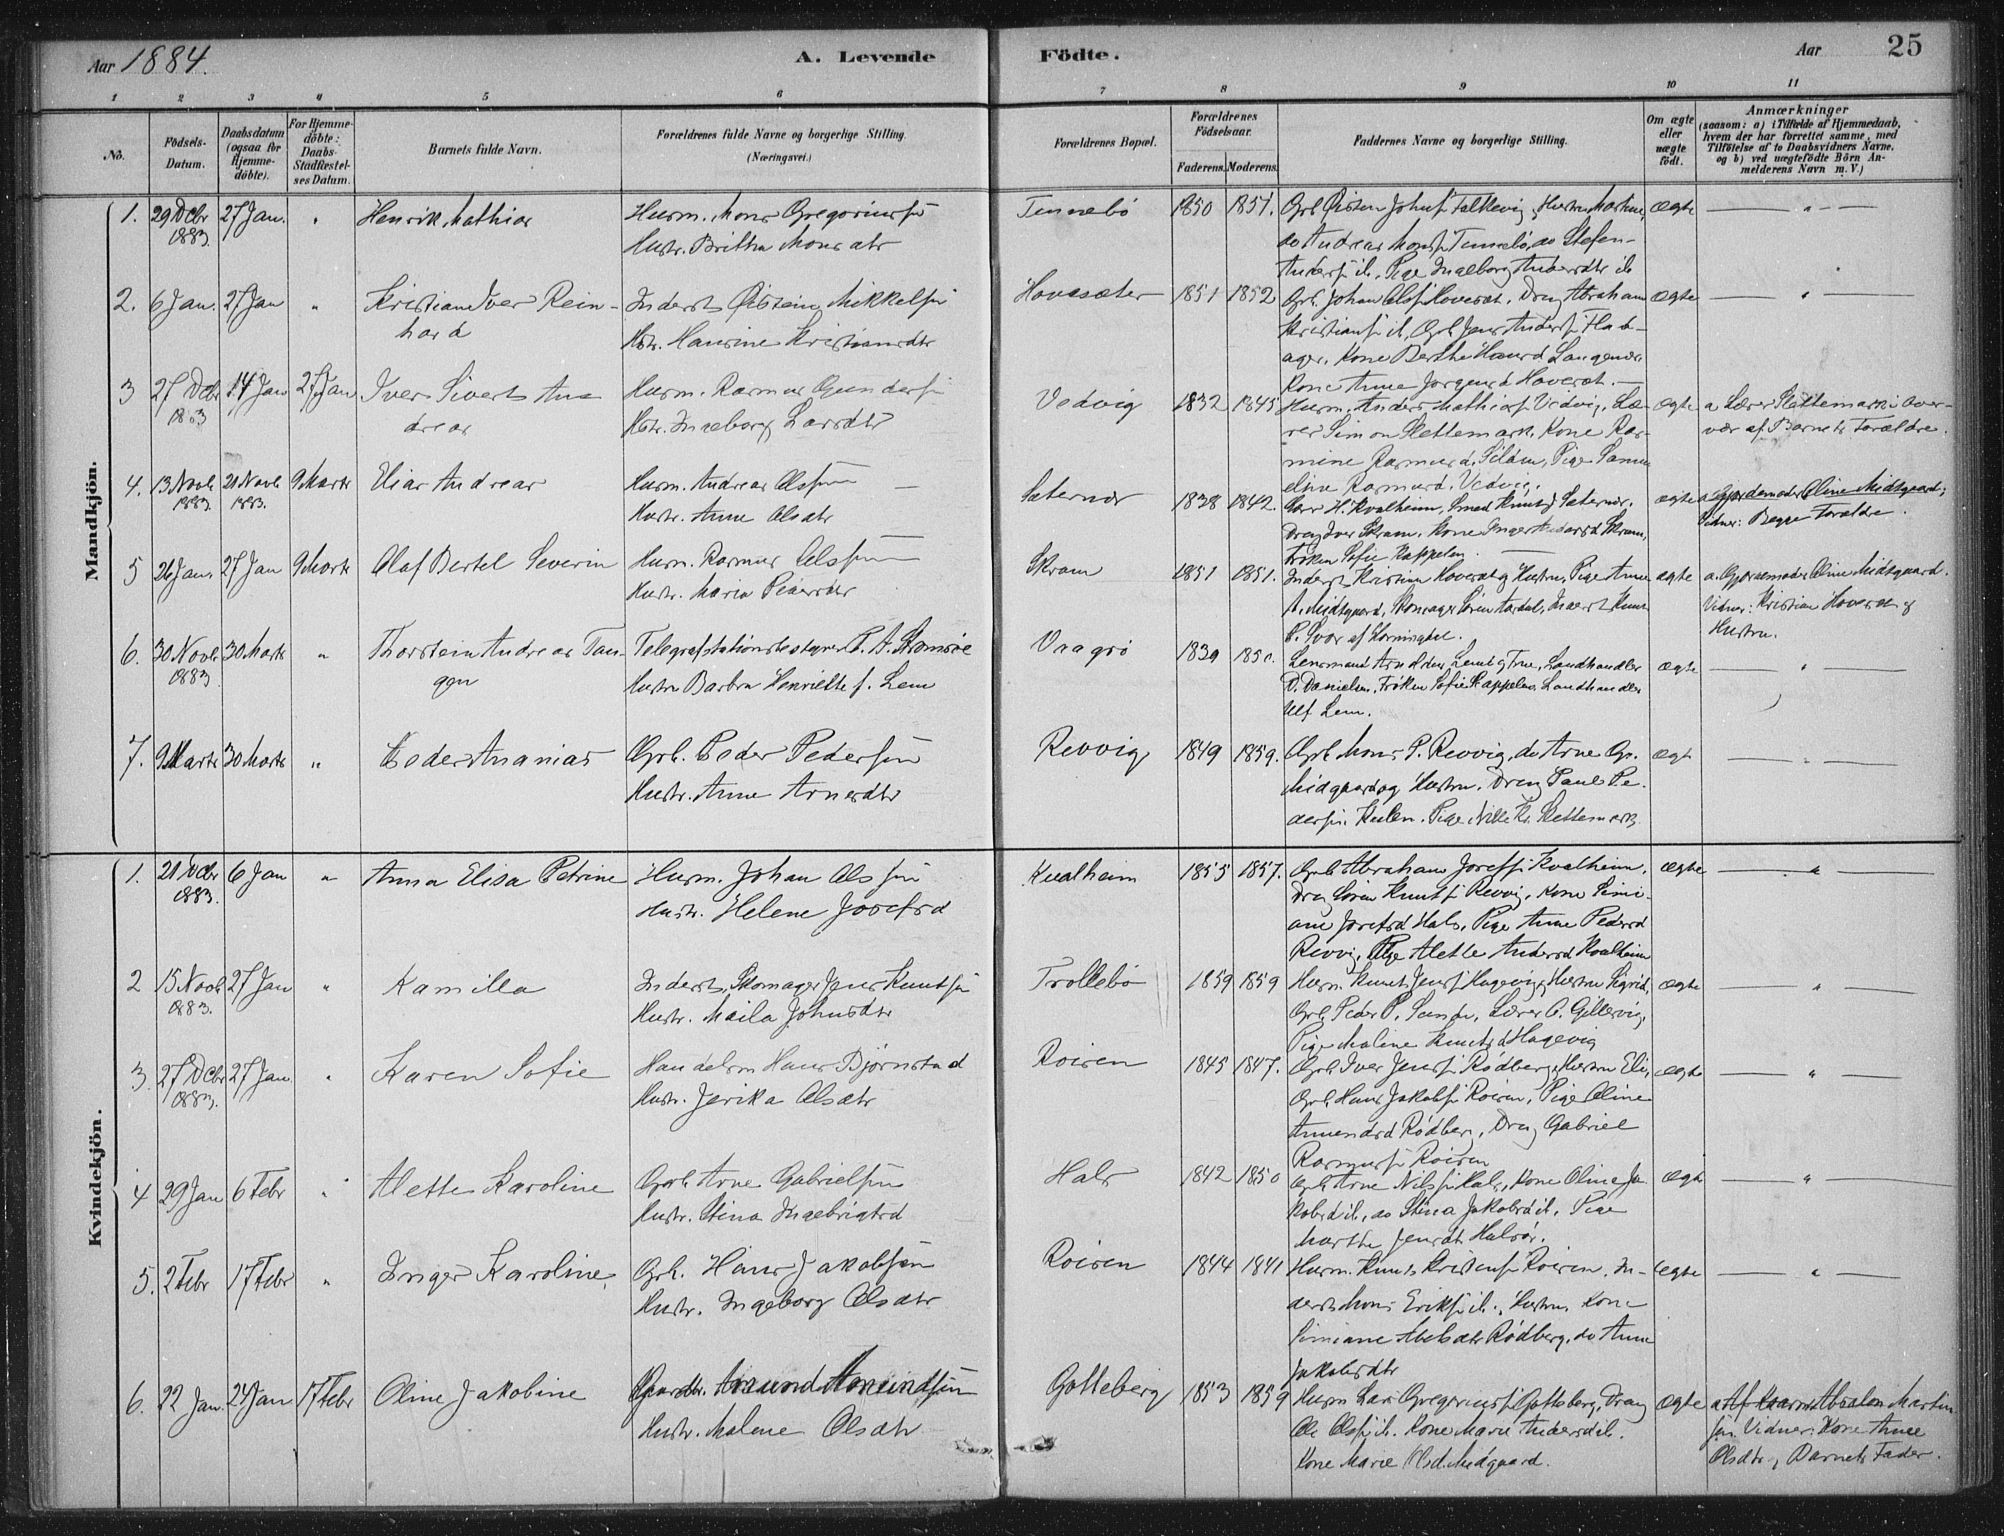 Aar 1884. A. Levende Födte. Aar 25
1 2 3 4 5 6 7 8 9 10 11
No. Födsels-Datum. Daabsdatum (ogsaa for Hjemmedöbte). For Hjemmedöbte: Daabs-Stadfæstelses Datum. Barnets fulde Navn. Forældrenes fulde Navne og borgerlige Stilling. (Næringsvei.) Forældrenes Bopæl. Forældrenes Födselsaar. Faderens. Moderens. Faddernes Navne og borgerlige Stilling. Om ægte eller uægte födt. Anmærkninger (saasom: a) i Tilfælde af Hjemmedaab, hvem der har forrettet samme, med Tilföielse af to Daabsvidners Navne, og b) ved uægtefödte Börn Anmelderens Navn m. V.)
Mandkjön.
1. 29 Dcbr 1883. 27 Jan. " Henrik Mathias
Husm. Mons Gregoriussøn
Hustr. Britha Monsdtr
Tennebö 1850 1851.
Grb. Øisten Johnss. Falkevig, Hustru Marthe,
do Andreas Monss. Tennebö, do Stefen
Anderss. ib. Pige Ingeborg Andersdtr ib
ægte — " —
2. 6 Jan. 27 Jan " Kristian Iver Rein-
hard
Inderst Øistein Mikkelsøn
Hstr. Hansine Kristiansdtr
Hovesæter 1851 1852
Grb. Johan Olss. Hovesæt. Dreng Abraham
Kristianss. ib, Grb Jens Anderss. Flad-
ager. Kone Berthe Hansd
Kone Anne Jørgensd Hovesæt. —
ægte — " —
3 27 Dcbr 1883 14 Jan 27 Jan Iver Sivert An-
dreas
Husm. Rasmus Gunderss.
Hstr. Ingeborg Larsdtr
Vedvig 1832 1845
Husm. Anders Mathiass. Vedvig. Læ-
rer Simon Slettemark, Kone Ras-
mine Rasmusd. Silden, Pige Samu-
eline Rasmusd. Vedvig.
ægte a Lærer Slettemark i Over-
vær af Barnets Forældre.
4. 13 Novb 1883. 20 Novb 1883. 9 Marts Elias Andreas
Husm. Andreas Olssøn —
Hustr. Anne Olsdtr
Sæternes 1838 1842.
Lærer H. Kvalheim, Smed Knud J Sæternes.
Dreng Iver Skram, Kone Inger Andersd Skram,
Frøken Sofie Kappelen. —
ægte a Gjordemoder Oline Midtgaard;
Vidner: Begge Forældre.
5 26 Jan. 27 Jan 9 Marts Olaf Bertel Severin
Husm. Rasmus Olssøn
Hustr. Maria Pedersdtr
Skram 1851 1851.
Inderst Kristian Hovesæt og Hustru, Pige Anne
A. Midtgaard, Skomager Søren Aardal, Inderst Knut
P. Svor af Hornindal.
ægte a. Gjordemoder Oline Midtgaard.
Vidner: Kristian Hovesæt og
Hustru.
6. 30 Novb 1883 30 Marts " Thorstein Andreas Tan-
gen
Telegrafstationsbestyrer P. A. Strømsøe
Hustru Barbra Henriette f. Lem
Vaagsö 1839 1850.
Lensmand Arnoldus Lem og Frue, Landhandler
D. Danielsen, Frøken Sofie Kappelen, Landhandler
Ulf Lem.
ægte — " —
7. 9 Marts 30 Marts " Peder Ananias
Grb. Peder Pederssøn
Hustr. Anne Arnesdtr
Revvig 1849 1859.
Grb Mons P. Revvig, do Arne Gr.
Midgaard og Hustru. Dreng Paul Pe-
derss. Kulen. Pige Nille Kr. Slettemark
ægt — " —
Kvindekjön.
1. 21 Dcbr 1883. 6 Jan " Anna Elisa Petrine
Husm. Johan Olssøn
Hustr. Helene Josefsd
Kvalheim 1855 1857.
Grb Abraham Josefss. Kvalheim,
Dreng Søren Knutss. Revvig, Kone Simi-
ane Josefsd Hals, Pige Anne Pedersd
Revvig, Pige Alette Andersd Kvalheim
ægte — " —
2 15 Novb 1883. 27 Jan " Kamilla
Inderst, Skomager Jens Knutss.
Hustr. Maila Johnsdtr
Trollebö 1859 1859
Husm. Knut Jenss. Hagevig, Hustru Sigrid,
Grb. Peder P. Sande, Lærer O. Gillesvig,
Pige Maline Knutsd Hagevig
ægte — " —
3 27 Dcbr 1883. 27 Jan " Karen Sofie
Handelsm Hans Bjørnstad
Hustr. Jerika Olsdtr
Roiren 1845 1847.
Grb Iver Jenss. Rødberg, Hustru Eli,
Grb. Hans Jakobss. Roiren, Pige Oline
Amundsd Rødberg, Dreng Gabriel
Rasmuss. Roiren
ægte — " —
4 29 Jan 6 Febr " Alette Karoline
Grb. Arne Gabrielsøn
Hustr. Stina Ingebrigtsd
Hals 1842 1850
Grb Arne Nilss. Hals, Kone Oline Ja-
kobsd ib., do Stina Jakobsd ib. Pige
Marthe Jensdt Halsör.
ægte — " —
5. 2 Febr 17 Febr " Inger Karoline
Grb. Hans Jakobssøn
Hustr. Ingeborg Olsdtr
Roiren 1844 1841
Husm. Knut Kristenss. Roiren. In-
derst Mons Erikss. ib., Hustru, Kone
Simiane Abelsdtr Rødberg, do Anne
Jakobsdtr
ægte — " —
6. 22 Jan. 24 Jan 17 Febr Oline Jakobine
Gaardbr. Amund Amundssøn
Hustr. Malene Olsdtr
Gotteberg 1853 1859
Husm Lars Gregoriuss. Gotteberg, Dreng
Ole Olss. ib. Kone Marie Andersd ib.
Kone Marie Olsd. Midgaard.
ægte a Af Absalon Martin-
søn Vidner: Kone Anne
Olsdtr, Barnets Fader.